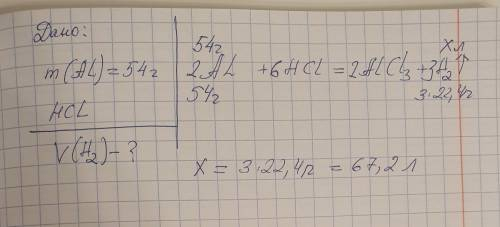 Дано:
m(AL)=54г
HCL
V(H₂)-?
54г хл
2AL +6HCL=2ALCL₃+3H₂↑
54г 3·22,4л
X = 3·22,4л = 67,2л